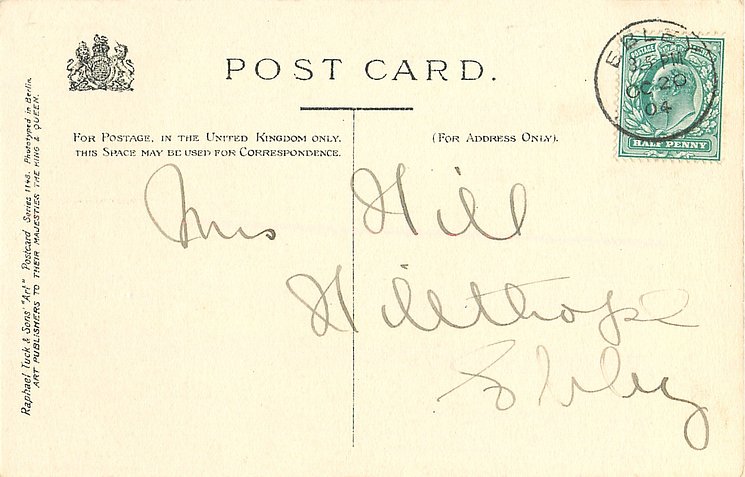 POST CARD.
FOR POSTAGE, IN THE UNITED KINGDOM ONLY,
THIS SPACE MAY BE USED FOR CORRESPONDENCE.
(FOR ADDRESS ONLY).
EBLEY
8-5 PM
OC 20
04
HALF PENNY
Mrs Hill
Hillthorpe
Ebley
Raphael Tuck & Sons' "Art" Postcard Series 1148. Phototyped in Berlin.
ART PUBLISHERS TO THEIR MAJESTIES THE KING & QUEEN.